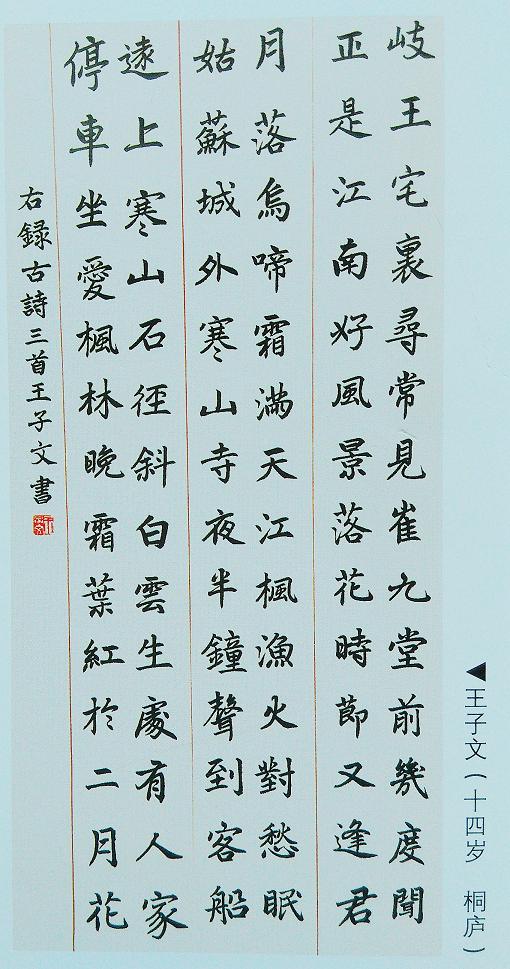 岐王宅裏尋常見崔九堂前幾度聞
正是江南好風景落花時節又逢君
月落烏啼霜滿天江楓漁火對愁眠
姑蘇城外寒山寺夜半鐘聲到客船
遠上寒山石徑斜白雲生處有人家
停車坐愛楓林晚霜葉紅於二月花
右録古詩三首王子文書
◀王子文(十四岁 桐庐)